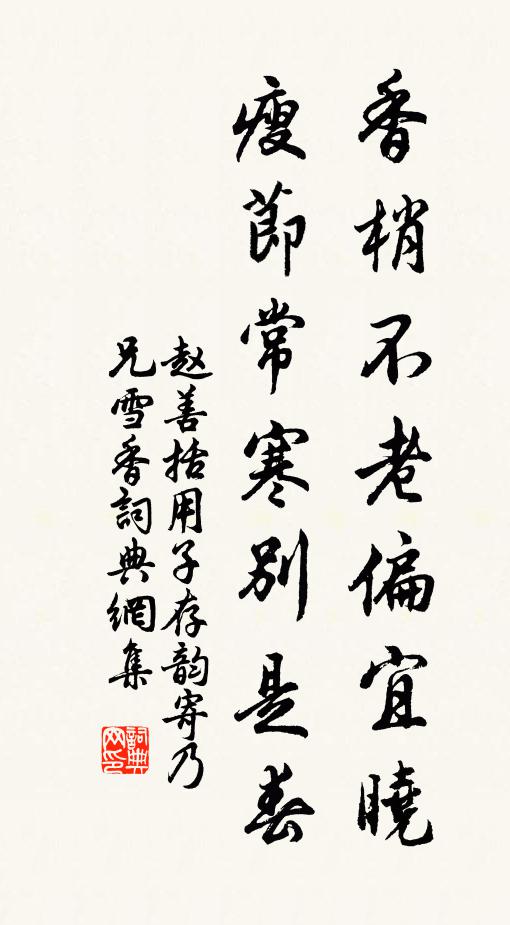 香梢不老偏宜曉
瘦節常寒別是春
赵善括用子存韵寄乃
兄雪香詞典網集
詞典
网印